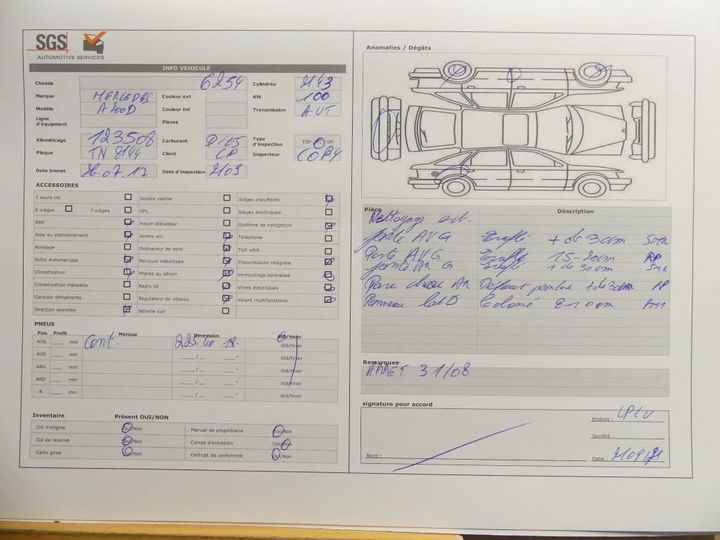 SGS
AUTOMOTIVE SERVICES
INFO VEHICULE
Chassis 6254 Cylindrée 2143
Marque MERCEDES Couleur ext KW 100
Modèle A200D Couleur Int Transmission AUT
Ligne d'équipement Places
Kilométrage 123508 Carburant DIES Type d'inspection
Plaque TN 8144 Client LP Inspecteur COPY
Date Immat 26.07.17 Date d'inspection 2109
ACCESSOIRES
1 seule clé Double cabine Sièges chauffants
6 sièges 7 sièges GPL Sièges électriques
ABS Hayon élévateur Système de navigation
Aide au stationnement Jantes alu Téléphone
Attelage Ordinateur de bord Toit vitré
Boîte Automatique Peinture métallisée Transmission intégrale
Climatisation Phares au xénon Verrouillage centralisé
Climatisation manuelle Radio cd Vitres électriques
Console réfrigérante Régulateur de vitesse Volant multifonctions
Direction assistée Sellerie cuir
PNEUS
Pos. Profil Marque Dimension
AVG mm Cont. 225 40 18 été/hiver
AVD mm été/hiver
ARG mm été/hiver
ARD mm été/hiver
R mm été/hiver
Inventaire Présent OUI/NON
Clé d'origine Oui/Non Manuel de propriétaire Oui/Non
Clé de réserve Oui/Non Carnet d'entretien Oui/Non
Carte grise Oui/Non Certicat de conformité Oui/Non
Anomalies / Dégâts
Pièce Déscription
Nettoyage ext.
Jante AVG Eraflé + de 30cm
Porte AVG Eraflé 15-20cm RP
Jante AR G Eraflé + de 30cm
Pare choc AR Défaut peinture + de 30cm RP
Panneau lat D 8-10cm
Remarques
ARRET 31/08
signature pour accord
Endroit :
Société :
Nom : Date : 21/09/21